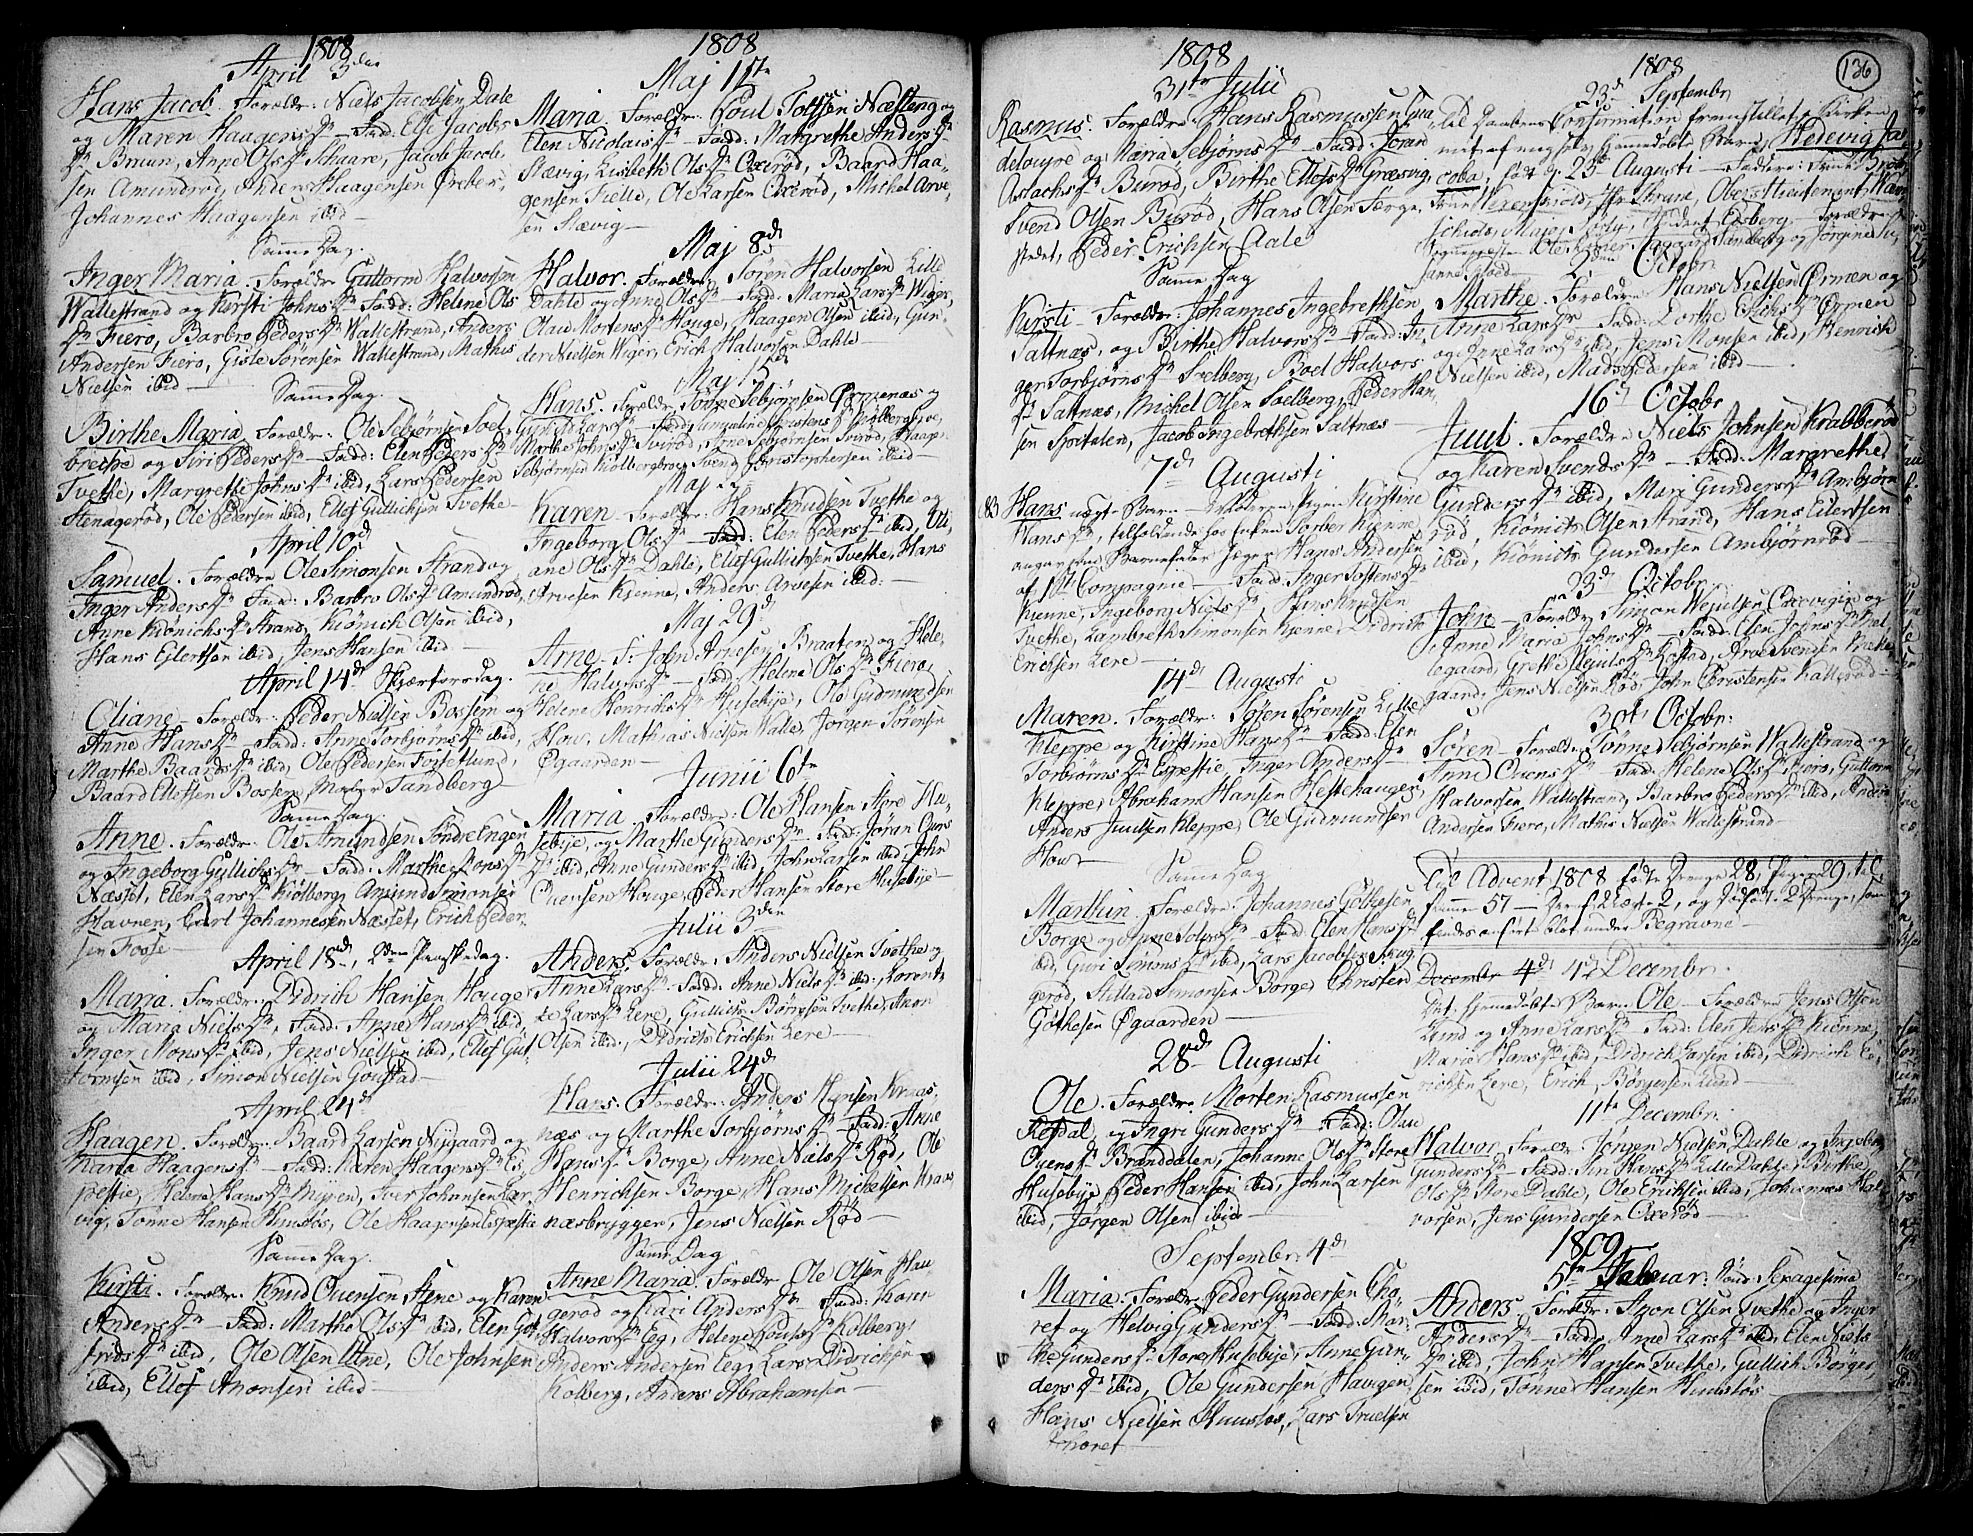 1808
April 3den
Hans Jacob. Forældr: Niels Jacobsen Dale
og Maren Haagensdr — Fadd: Else Jacobs
dr Bruun, Anne Olsdr Skaare, Jacob Jacob
sen Amundrød, Anders Haagensen
Johannes Haagensen ibid —
Samme Dag.
Inger Maria. Forældr Guttorm Halvorsen
Wallestrand og Kirsti Johnsdr Fadd: Helene Ols
dr Fiero, Barbro Pedersdr Wallestrand, Anders
Andersen Fiero, Gisle Sørensen Wallestrand, Mathis
Nielsen ibid —
Samme Dag.
Birthe Maria. Forældr: Ole Sebjørnsen Soel
brecke og Siri Pedersdr — Fadd: Elen Pedersdr
Tvethe, Margrethe Johnsdr ibid, Lars Pedersen
Stenagerød, Ole Pedersen ibid, Ellef Gullichsen Tvethe
April 10d
Samuel. Forældr Ole Simonsen Strand og
Inger Andersdr Fadd: Barbro Olsdr Amundrød,
Anne Kiønichsdr Strand, Kiønich Olsen ibid,
Hans Eilertsen ibid, Jens Hansen ibid —
April 14d Skjærtorsdag.
Oliane — Forældr: Peder Nielsen Bossem og
Anne Hansdr — Fadd: Anne Torbjørnsdr ibid,
Marthe Baardsdr ibid, Ole Pedersen Fossetlund,
Baard Ellefsen Bossem, Tandberg —
Samme Dag.
Anne. Forældr: Ole Amundsen Søndre Engen
og Ingeborg Gullichsdr — Fadd: Marthe Moresdr
Næsset, Elen Larsdr Kiølberg, Amund Simonsen
Havnen, Carl Johannesen Næsset, Erich Peder
sen Fosse —
April 18d, 2den Paaskedag.
Maria. Forældr: Didrich Hansen Houge
og Maria Nielsdr, Fadd: Anne Hansdr ibid,
Inger Monsdr ibid, Jens Nielsen ibid, Ellef Gut
tormsen ibid, Simon Nielsen Goustad —
April 24d
Haagen. Forældr: Baard Larsen Nygaard og
Karia Haagensdr — Fadd: Karen Haagensdr Es
pestie, Helene Hansdr Myren, Iver Johnsen Lar
vig, Tønne Hansen Humstøs, Ole Haagensen Espestie
Samme Dag.
Kirsti. Forældr: Knud Ouensen Stene og Karen
Andersdr — Fadd: Marthe Olsdr ibid, Elen Got
fridsdr ibid, Ole Olsen Utne, Ole Johnsen
ibid, Ellef Anonsen ibid —
1808
Maj 1ste
Maria. Forældr: Poul Tolfsen Næsteng og
Elen Nicolaisdr — Fadd: Margrethe Andersdr
Slævig, Lisbeth Olsdr Oxerød, Baard Haa
gensen Fielle, Ole Larsen Oxerød, Michel Arve
sen Slævig —
Maj 8d
Halvor. Forældr: Søren Halvorsen Lille
Dahle og Anne Olsdr — Fadd: Maria Larsdr Wiger,
Olau Mortensdr Houge, Haagen Olsen ibid, Gun
der Nielsen Wiger, Erich Halvorsen Dahle —
Maj 15d
Hans. Forældr Tønne Sebjørnsen Ørmenæs og
Marthe Johnsdr Svirød, Tore Sebjørnsen Svirød, Haagen
Sebjørnsen Kiølbergbroe, Svend Christophersen ibid —
Karen. Forældr: Hans Knudsen Tvethe og
Ingeborg Olsdr — Fadd: Elen Pedersdr ibid, Oli
ane Olsdr Dahle, Ellef Gullichsen Tvethe, Hans
Arvesen Kienne, Anders Arvesen ibid: —
Maj 29d
Arne. F: John Arnesen Braaten og Hele
ne Halvorsdr — Fadd: Helene Olsdr Fiero,
Helene Henrichsdr Husebye, Ole Gudmundsen
How, Mathias Nielsen Walle, Jørgen Sørensen
Øgaarden —
Junii 6te
Maria. Forældre: Ole Hansen Store Hu
sebye, og Marthe Gundersdr — Fadd: Jøran Ouens
dr ibid, Anne Gundersdr ibid, John Larsen ibid, John
Ouensen Houge, Peder Hansen Store Husebye —
Julii 3den
Anders. Forældr: Anders Nielsen Tvethe og
Anne Larsdr — Fadd: Anne Nielsdr ibid, Dorent
he Larsdr Lere, Gullich Børgesen Tvethe, Anon
Olsen ibid., Didrich Erichsen Lere —
Julii 24d
Hans. Forældr: Anders Hansen Kraas,
næs og Marthe Torbjørnsdr — Fadd: Anne
Hansdr Borge, Anne Nielsdr Rød, Ole
Henrichsen Borge, Hans Michelsen Kraas
næsbrygge, Jens Nielsen Rød —
Samme Dag
Anne Maria. Forældr: Ole Olsen Hau
gerød og Kari Andersdr — Fadd: Karen
Halvorsdr Eeg, Helene Poulsdr Kolberg,
Anders Andersen Eeg, Lars Didrichsen
Kolberg, Anders Abrahamsen —
1808
31te Julii
Rasmus. Forældre: Hans Rasmussen Gua
deløyre og Maria Sebjørnsdr — Fadd: Jøran
Aslachsdr Burød, Birthe Ellefsdr Græsvig,
Svend Olsen Burød, Hans Olsen Færge
stedet, Peder Erichsen Aale —
Samme Dag
Kirsti — Forældr: Johannes Ingebrethsen
Saltnæs, og Birthe Halvorsdr — Fadd: In
ger Torbjørnsdr Soelberg, Boel Halvors
dr Saltnæs, Michel Olsen Soelberg, Peder Han
sen Spetalen, Jacob Ingebrethsen Saltnæs —
7d Augusti
Hans uægte Barn — Moderen Pigen Kirstine
Hansdr, tilholdende hos Enken Torber Kienne,
angiven Barnefader Jæger Hans Andersen
af 1ste Compagnie — Fadd: Inger Tostensdr
Kienne, Ingeborg Nielsdr, Hans Knudsen
Tvethe, Lambreth Simonsen Kienne, Didrich
Erichsen Lere —
14d Augusti
Maren. Forældr: Søren Sørensen Lille
Kleppe og Kirstine Hansdr — Fadd: Elen
Torbjørnsdr Espestie, Inger Andersdr
Kleppe, Abraham Hansen Hestehaugen,
Anders Juulsen Kleppe, Ole Gudmundsen
How —
Samme Dag
Marthin. Forældr: Johannes Gøthesen
Borge og Anne Tolvsdr — Fadd Elen Hansdr
ibid, Guri Simonsdr ibid, Lars Jacobsen Haug
gerød, Hillard Simonsen Borge, Christen
Gøthesen Øgaarden —
28d Augusti
Ole. Forældre: Morten Rasmussen
Refdal og Ingri Gundersdr — Fadd: Olau
Ouensdr Branddalen, Johanne Olsdr Store
Husebye, Peder Hansen ibid, John Larsen
ibid, Jørgen Olsen ibid —
September 4d
Maria. Forældr: Peder Gundersen Tho
ret og Helvig Gundersdr — Fadd: Mar
the Gundersdr Store Husebye, Anne Gun
dersdr ibid, Ole Gundersen Havigen,
Hans Nielsen Humstøs, Lars Truelsen
Thoret —
1808
136
23d Septembr
Til Daabens Confirmation fremstillet i Kirken
mit af mig selv hjemmedøbte Barn, Hedevig Ja
coba, født d. 23d Augusti — Faddere:
Werenskiold, Fr. Thrane, Oberstlieutenant
schiold, Major Sibbern, Student Edsberg. Forældre
Sogneprest Ole Romer Aagaard Sandberg og Jørgine Su
sanne
2den Octobr
Marthe. Forældre Hans Nielsen Ørmen og
Anne Larsdr — Fadd: Dorthe Erichsdr Ørmen
og Anne Larsdr ibid, Jens Monsen ibid, Henrich
Nielsen ibid, Mads Pedersen ibid —
16d Octobr
Juul. Forældre Niels Johnsen Krabberød
og Karen Svendsdr — Fadd: Margrethe
Gundersdr ibid, Mari Gundersdr Ambjørn
rød, Kiønich Olsen Strand, Hans Eilertsen
ibid, Kiønich Gundersen Ambjørnrød —
23d Octobr
John — Forældr Simon Wejulsen Oxevigen og
Anne Maria Johnsdr — Fadd: Elen Johnsdr Møl
legaard, Grethe Wejulsdr Rostad, Arve Svendsen Møllegaard
gaard, Jens Nielsen Rød, John Christensen Kallerød —
30te Octobr:
Søren — Forældr: Tønne Sebjørnsen Wallestrand og
Anne Ouensdr — Fad: Helene Olsdr Fiero, Guttorm
Halvorsen Wallestrand, Barbro Pedersdr ibid, Anders
Andersen Fiero, Mathis Nielsen Wallestrand —
Til Advent 1808 fødte Drenge 28, Piger 29, til
sammen 57 — Deraf uægte 2, og Dødfødte 2 Drenge, som
findes anført blot under Begravne —
4de Decembr.
Det hjemmedøbte Barn Ole — Forældre Jens Olsen
Lund og Anne Larsdr — Fadd: Elen Jensdr Kienne,
Maria Hansdr ibid, Didrich Larsen ibid, Didrich E
richsen Lere, Erich Børgersen Lund —
11te Decembr.
Halvor Forældr Jørgen Nielsen Dahle og Ingebor
Gundersdr — Fadd: Siri Hansdr Lille Dahle, Birthe
Olsdr Store Dahle, Ole Erichsen ibid, Johannes Hal
vorsen, Jens Gundersen Oxerød —
1809
5te Februar: Sønd: Sexagesima
Anders. Forældr: Anon Olsen Tvethe og Inger
Andersdr — Fadd: Anne Larsdr ibid, Elen Niels
dr ibid, John Hansen Tvethe, Gullich Børge
sen ibid, Tønne Hansen Humstøs —